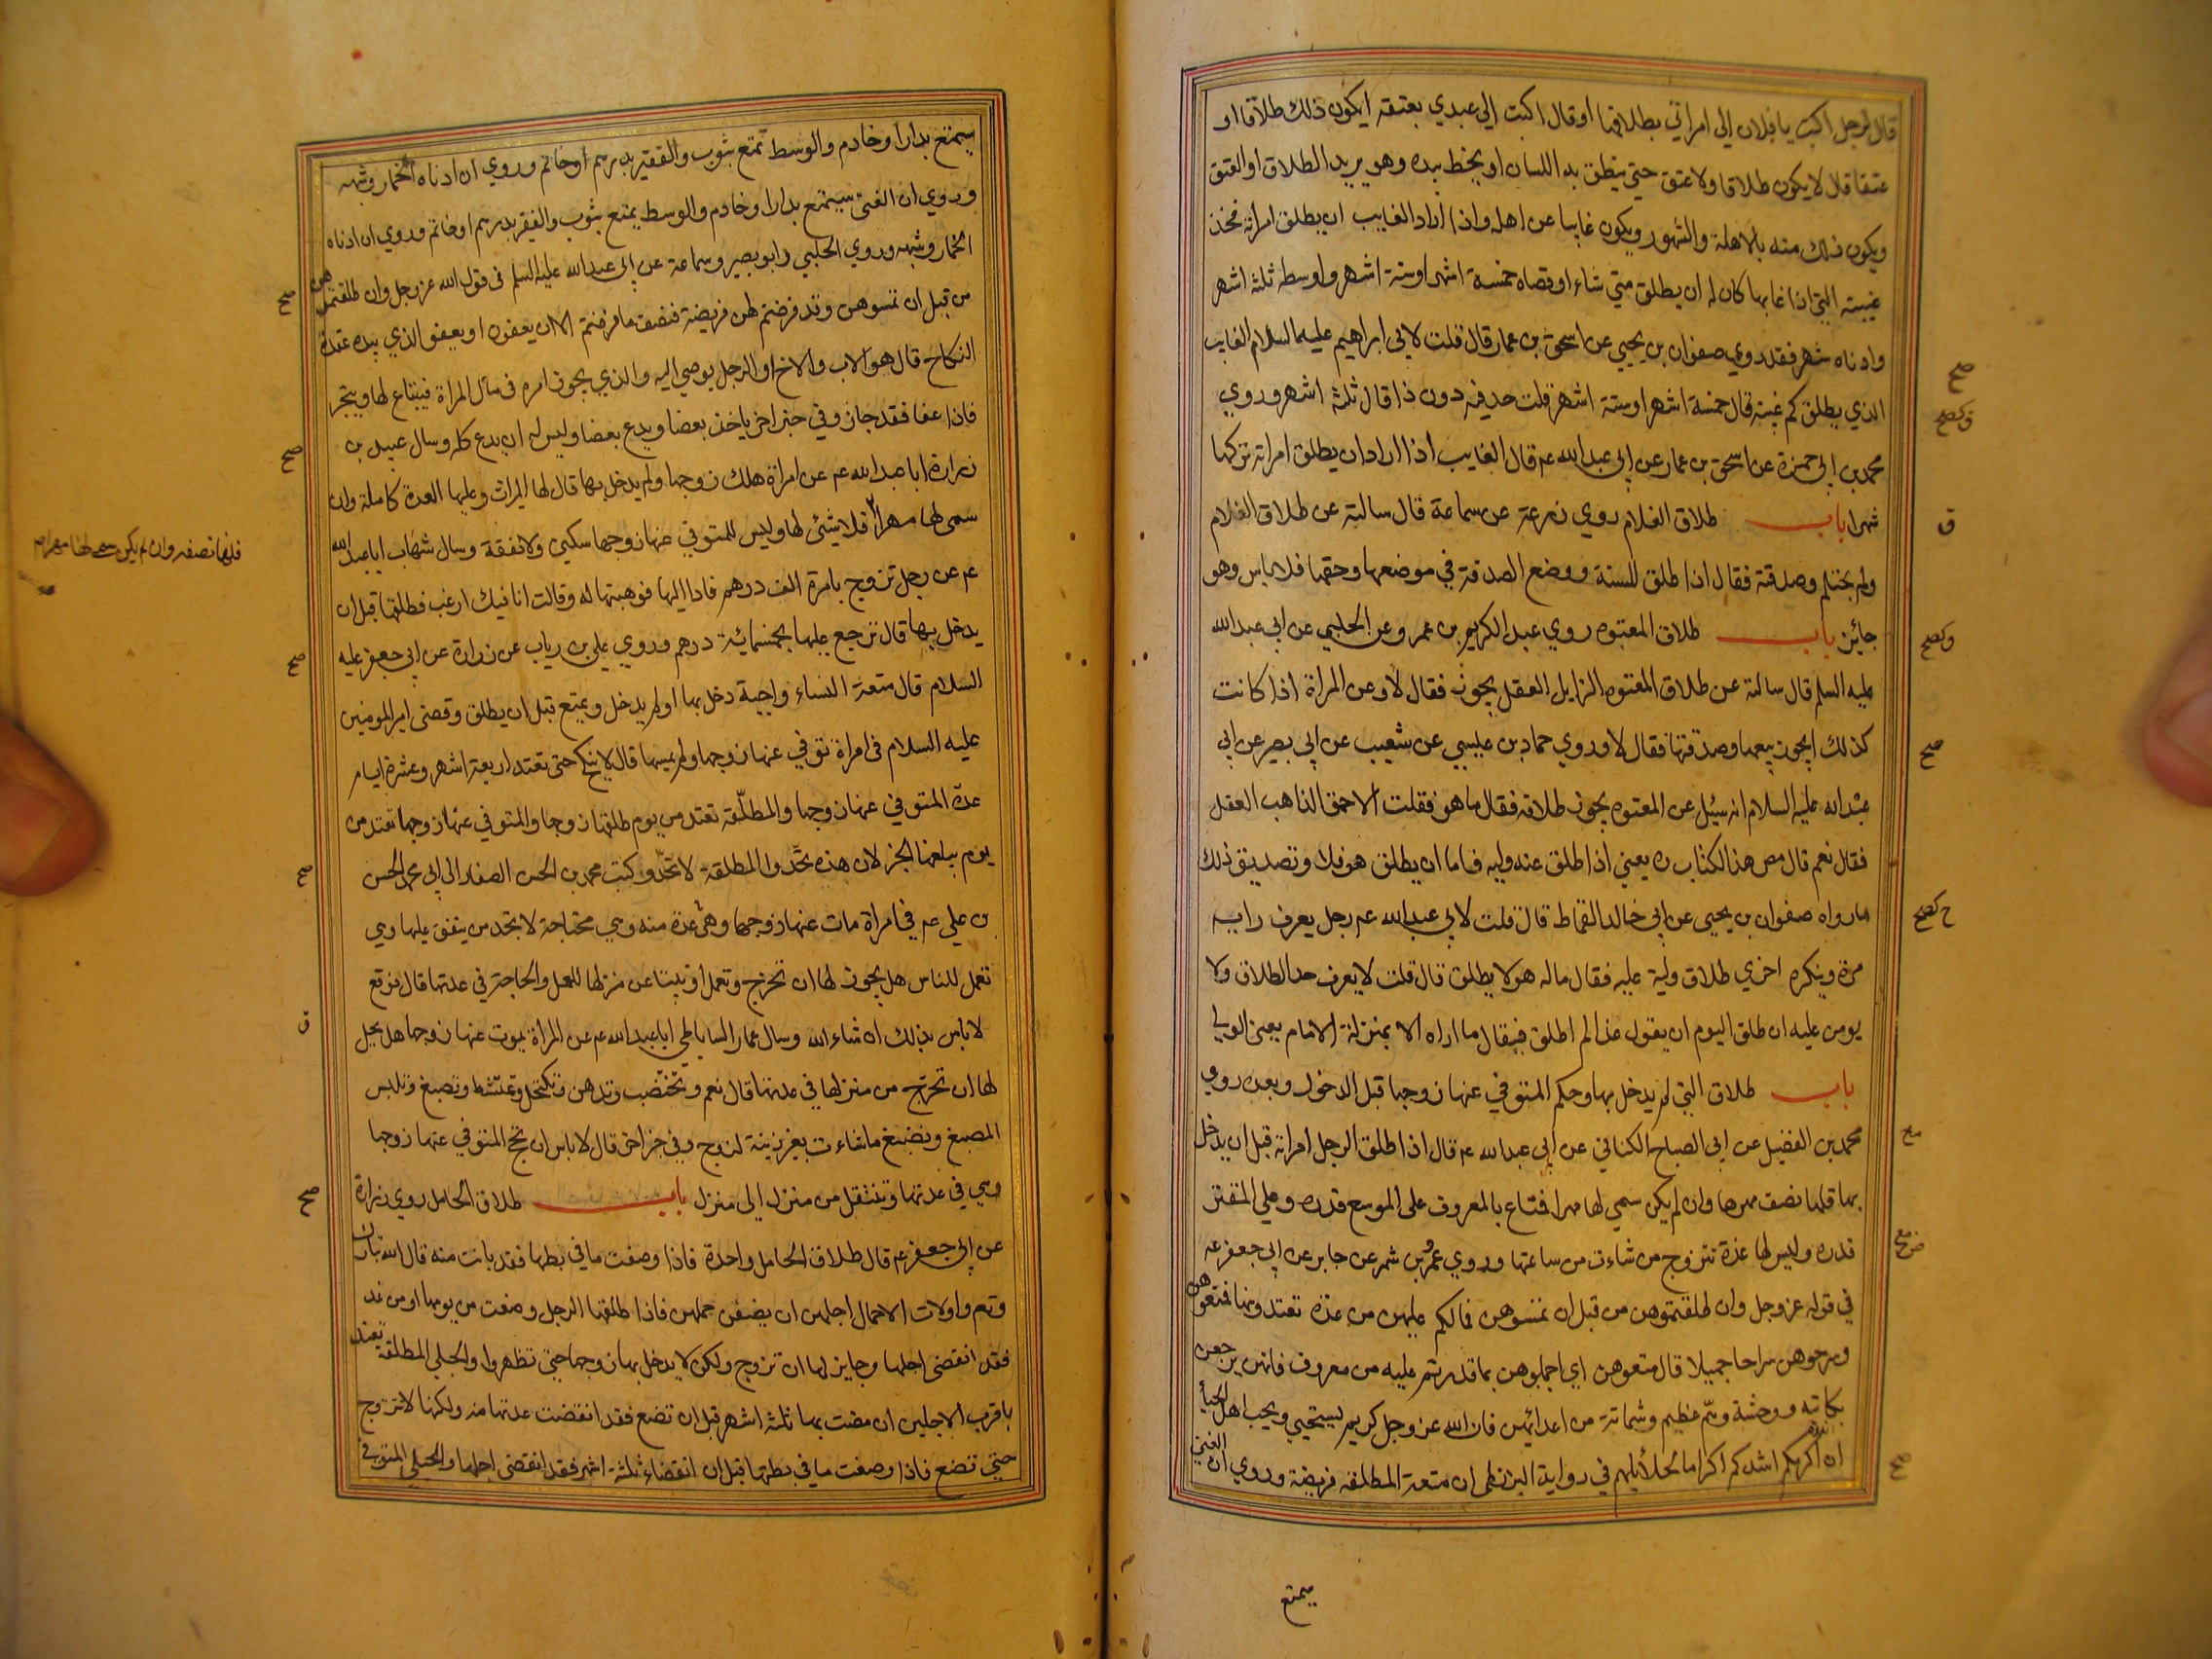 قال لرجل اكتب يا فلان الى امراتي بطلاقها او قال اكتب الى عبدي بعتقه ايكون ذلك طلاقا او
عتقا قال لا يكون طلاقا ولا عتق حتى ينطق به اللسان او يخط بيده وهو يريد الطلاق او العتق
ويكون ذلك منه بالاهلة والشهور ويكون غايبا عن اهله واذا اراد الغايب ان يطلق امراته فحد
غيبته التي اذا غابها كان له ان يطلق متى شاء اوقصاه خمسة اشهر او ستة اشهر واوسطه ثلثة اشهر
وادناه شهر فقد روي صفوان بن يحيى عن اسحق بن عمار قال قلت لابي ابراهيم عليه السلام الغايب
الذي يطلق كم غيبته قال خمسة اشهر او ستة اشهر قلت حد فيه دون ذا قال ثلثة اشهر وروي
محمد بن ابي حمزة عن اسحق بن عمار عن ابي عبد الله عم قال الغايب اذا اراد ان يطلق امراته تركها
شهرا باب طلاق الغلام روي زرعة عن سماعة قال سالته عن طلاق الغلام
ولم يحتلم وصدقته فقال اذا طلق للسنة ووضع الصدقة في موضعها وحقها فلا باس وهو
جائز باب طلاق المعتوه روي عبد الكريم بن عمرو عن الحلبي عن ابي عبد الله
عليه السلم قال سالته عن طلاق المعتوه الزايل العقل يجوز فقال لا وعن المراة اذا كانت
كذلك ايجوز بيعها وصدقتها فقال لا وروي حماد بن عيسى عن شعيب عن ابي بصير عن ابي
عبد الله عليه السلام انه سئل عن المعتوه يجوز طلاقه فقال ما هو فقلت الاحمق الذاهب العقل
فقال نعم قال مص هذا الكتاب ره يعني اذا طلق عنه وليه فاما ان يطلق هو فلا وتصديق ذلك
ما رواه صفوان بن يحيى عن ابي خالد القماط قال قلت لابي عبد الله عم رجل يعرف رايه
مرة وينكره اخرى طلاق وليه عليه فقال ماله هو لا يطلق قال قلت لا يعرف حد الطلاق ولا
يومن عليه ان طلق اليوم ان يقول غدا لم اطلق فيقال ما اراه الا بمنزلة الامام يعني الولي
باب طلاق التي لم يدخل بها وحكم المتوفي عنها زوجها قبل الدخول وبعده روي
محمد بن الفضيل عن ابي الصباح الكناني عن ابي عبد الله عم قال اذا طلق الرجل امراته قبل ان يدخل
بها فلها نصف مهرها وان لم يكن سمى لها مهرا فمتاع بالمعروف على الموسع قدره وعلى المقتر
قدره وليس لها عدة تتزوج من شاءت من ساعتها وروي عمرو بن شمر عن جابر عن ابي جعفر عم
في قوله عز وجل وان طلقتموهن من قبل ان تمسوهن فمالكم عليهن من عدة تعتدونها فمتعوهن
وسرحوهن سراحا جميلا قال متعوهن اي اجملوهن بما قدرتم عليه من معروف فانهن يرجعن
بكابه ووحشة وهم عظيم وشماتة من اعدائهن فان الله عز وجل كريم يستحيي ويحب اهل الحياء
ان اكرمكم اشدكم اكراما لحلائلهم في رواية البزنطي ان متعة المطلقة فريضة وروي ان الغني
يمتع
صح
ق
صح
صح
يمتع بدار او خادم والوسط تمتع بثوب والفقير بدرهم او خاتم وروي ان ادناه الخمار وشبهه
وروي ان الغني يمتع بدار او خادم والوسط يمتع بثوب والفقير بدرهم او خاتم وروي ان ادناه
الخمار وشبهه وروي الحلبي وابو بصير وسماعة عن ابي عبد الله عليه السلم في قول الله عز وجل وان طلقتموهن
من قبل ان تمسوهن وقد فرضتم لهن فريضة فنصف ما فرضتم الا ان يعفون او يعفو الذي بيده عقدة
النكاح قال هو الاب والاخ او الرجل يوصي اليه والذي يجوز امره في مال المراة فيبتاع لها ويتجر
فاذا عفا فقد جاز وفي خبر اخر ياخذ بعضا ويدع بعضا وليس له ان يدع كله وسال عبيد بن
زرارة ابا عبد الله عم عن امراة هلك زوجها ولم يدخل بها قال لها الميراث وعليها العدة كاملة وان
سمى لها مهرا فلا شئ لها وليس للمتوفي عنها زوجها سكنى ولا نفقة وسال شهاب ابا عبد الله
عم عن رجل تزوج بامرة الف درهم فاداها اليها فوهبتها له وقالت انا فيك ارغب فطلقها قبل ان
يدخل بها قال ترجع عليها بخمسمائة درهم وروي علي بن رياب عن زرارة عن ابي جعفر عليه
السلام قال متعة النساء واجبة دخل بها او لم يدخل ويمتع قبل ان يطلق وقضى امير المومنين
عليه السلام في امراة توفي عنها زوجها ولم يمسها قال لا تنكح حتى تعتد اربعة اشهر وعشرة ايام
عدة المتوفي عنها زوجها والمطلقة تعتد من يوم طلقها زوجها والمتوفي عنها زوجها تعتد من
يوم يبلغها الخبر لان هذه تحد والمطلقة لا تحد وكتب محمد بن الحسن الصفار الى ابي محمد الحسن
بن علي عم في امراة مات عنها زوجها وهي في عدة منه وهي محتاجة لا تجد من ينفق عليها وهي
تعمل للناس هل يجوز لها ان تخرج وتعمل او تبيت عن منزلها للعمل والحاجة في عدتها قال فوقع
لا باس بذلك ان شاء الله وسال عمار الساباطي ابا عبد الله عم عن المراة يموت عنها زوجها هل يحل
لها ان تخرج من منزلها في عدتها قال نعم وتختضب وتدهن وتكتحل وتمتشط وتصبغ وتلبس
المصبغ وتصنع ما شاءت بغير زينة لزوج وفي خبر اخر قال لا باس ان تحج المتوفي عنها زوجها
وهي في عدتها وتنتقل من منزل الى منزل باب طلاق الحامل روي زرارة
عن ابي جعفر عم قال طلاق الحامل واحدة فاذا وضعت ما في بطنها فقد بانت منه قال الله تبارك
وتع واولات الاحمال اجلهن ان يضعن حملهن فاذا طلقها الرجل وضعت من يومها او من غد
فقد انقضى اجلها وجايز لها ان تزوج ولكن لا يدخل بها زوجها حتى تطهر والحبلى المطلقة تعتد
باقرب الاجلين ان مضت بها ثلثة اشهر قبل ان تضع فقد انقضت عدتها منه ولكنها لا تتزوج
حتى تضع فاذا وضعت ما في بطنها قبل ان انقضاء ثلثة اشهر فقد انقضى اجلها والحبلى المتوفي
فلها نصفه وان لم يكن سمى لها مهرا
صح
صح
صح
صح
ق
صح